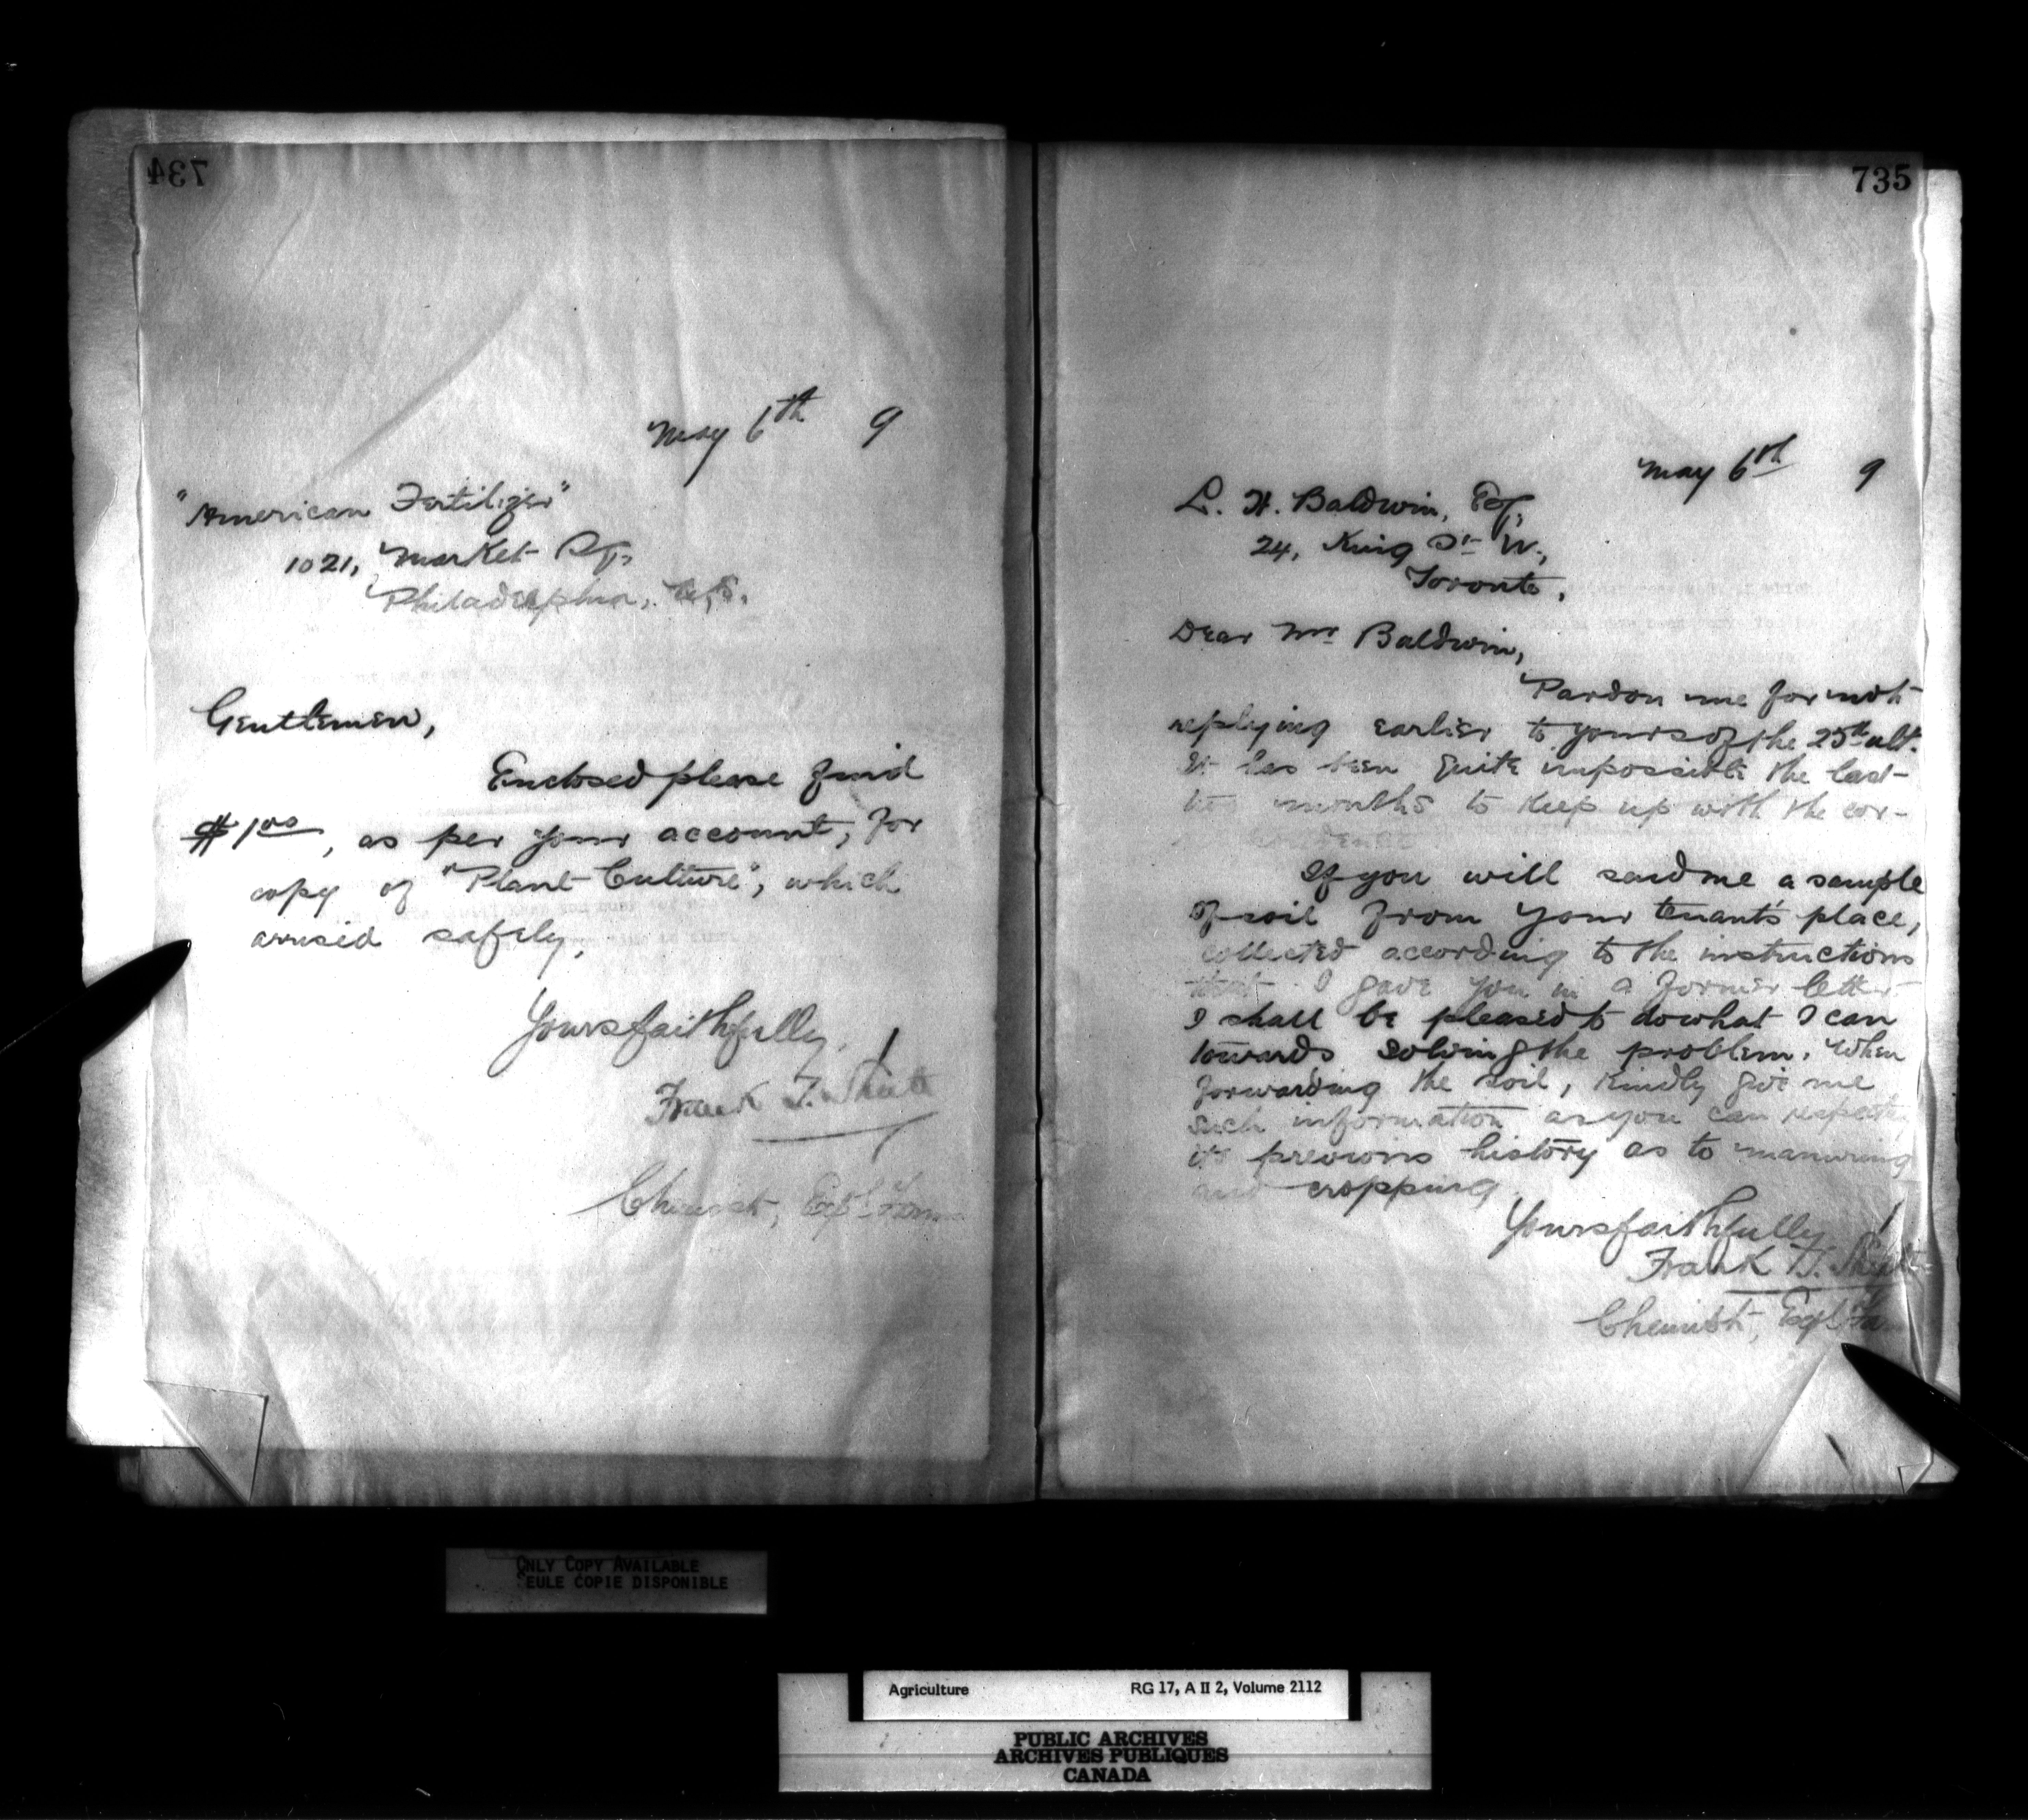 734
May 6th 9
"American Fertilizer"
1021, Market St,
Philadelphia, U.S.
Gentlemen,
Enclosed please find
$1.00, as per your account, for
copy of "Plant Culture", which
arrived safely.
Yours faithfully,
Frank T. Shutt
Chemist, Expl. Farms
735
May 6th 9
L. H. Baldwin, Esq,
24, King St W.,
Toronto,
Dear Mr Baldwin,
Pardon me for not
replying earlier to yours of the 25th ult.
It has been quite impossible the last
two months to keep up with the cor-
If you will send me a sample
of soil from your tenant's place,
collected according to the instructions
that I gave you in a former letter
I shall be pleased to do what I can
towards solving the problem. When
forwarding the soil, kindly give me
such information as you can respecting
its previous history as to manuring
and cropping
Yours faithfully
Frank T. Shutt
Chemist, Expl Fa
ONLY COPY AVAILABLE
SEULE COPIE DISPONIBLE
Agriculture RG 17, A II 2, Volume 2112
PUBLIC ARCHIVES
ARCHIVES PUBLIQUES
CANADA